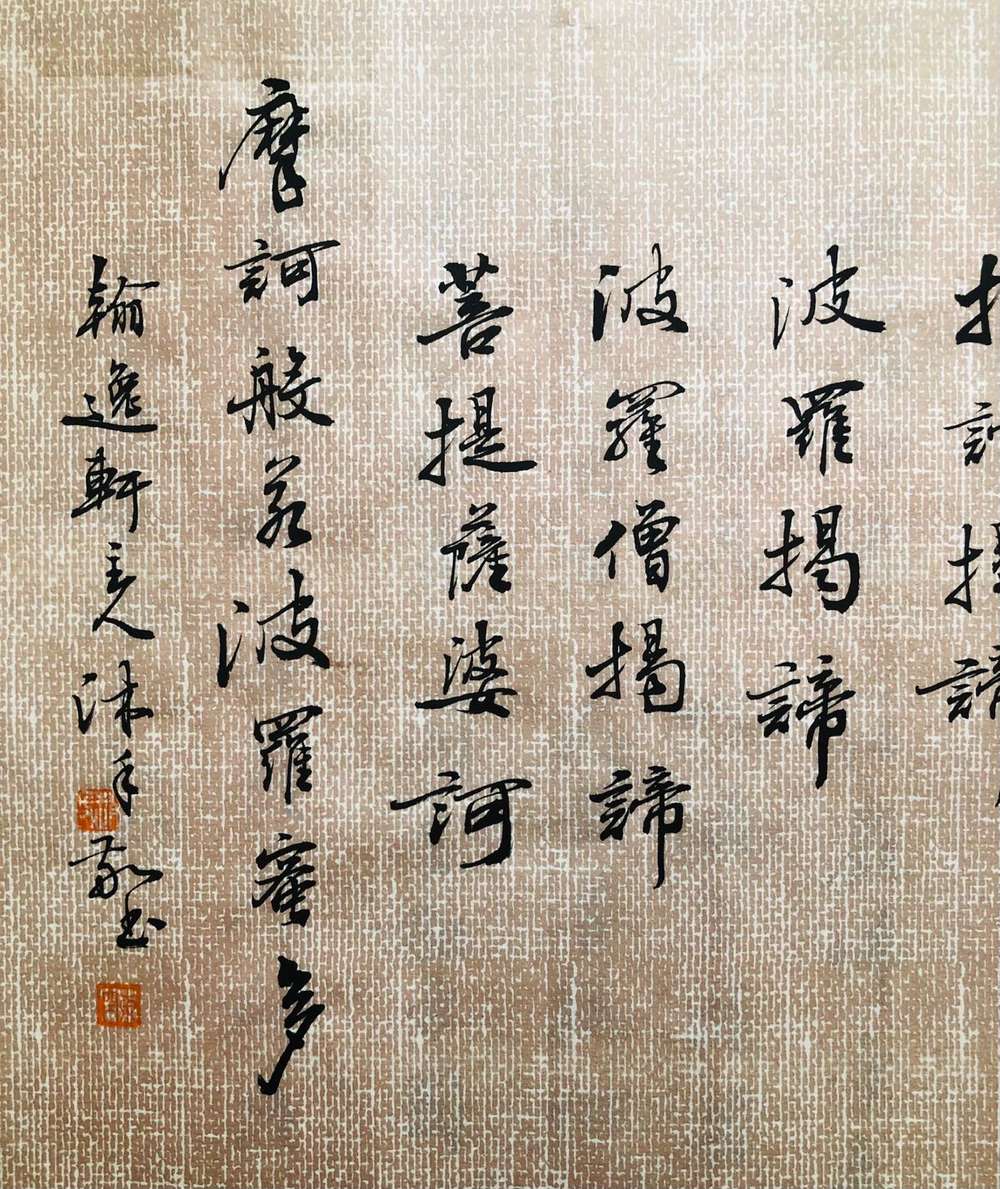 揭諦揭諦
波羅揭諦
波羅僧揭諦
菩提薩婆訶
摩訶般若波羅蜜多
翰逸軒主人沐手敬書